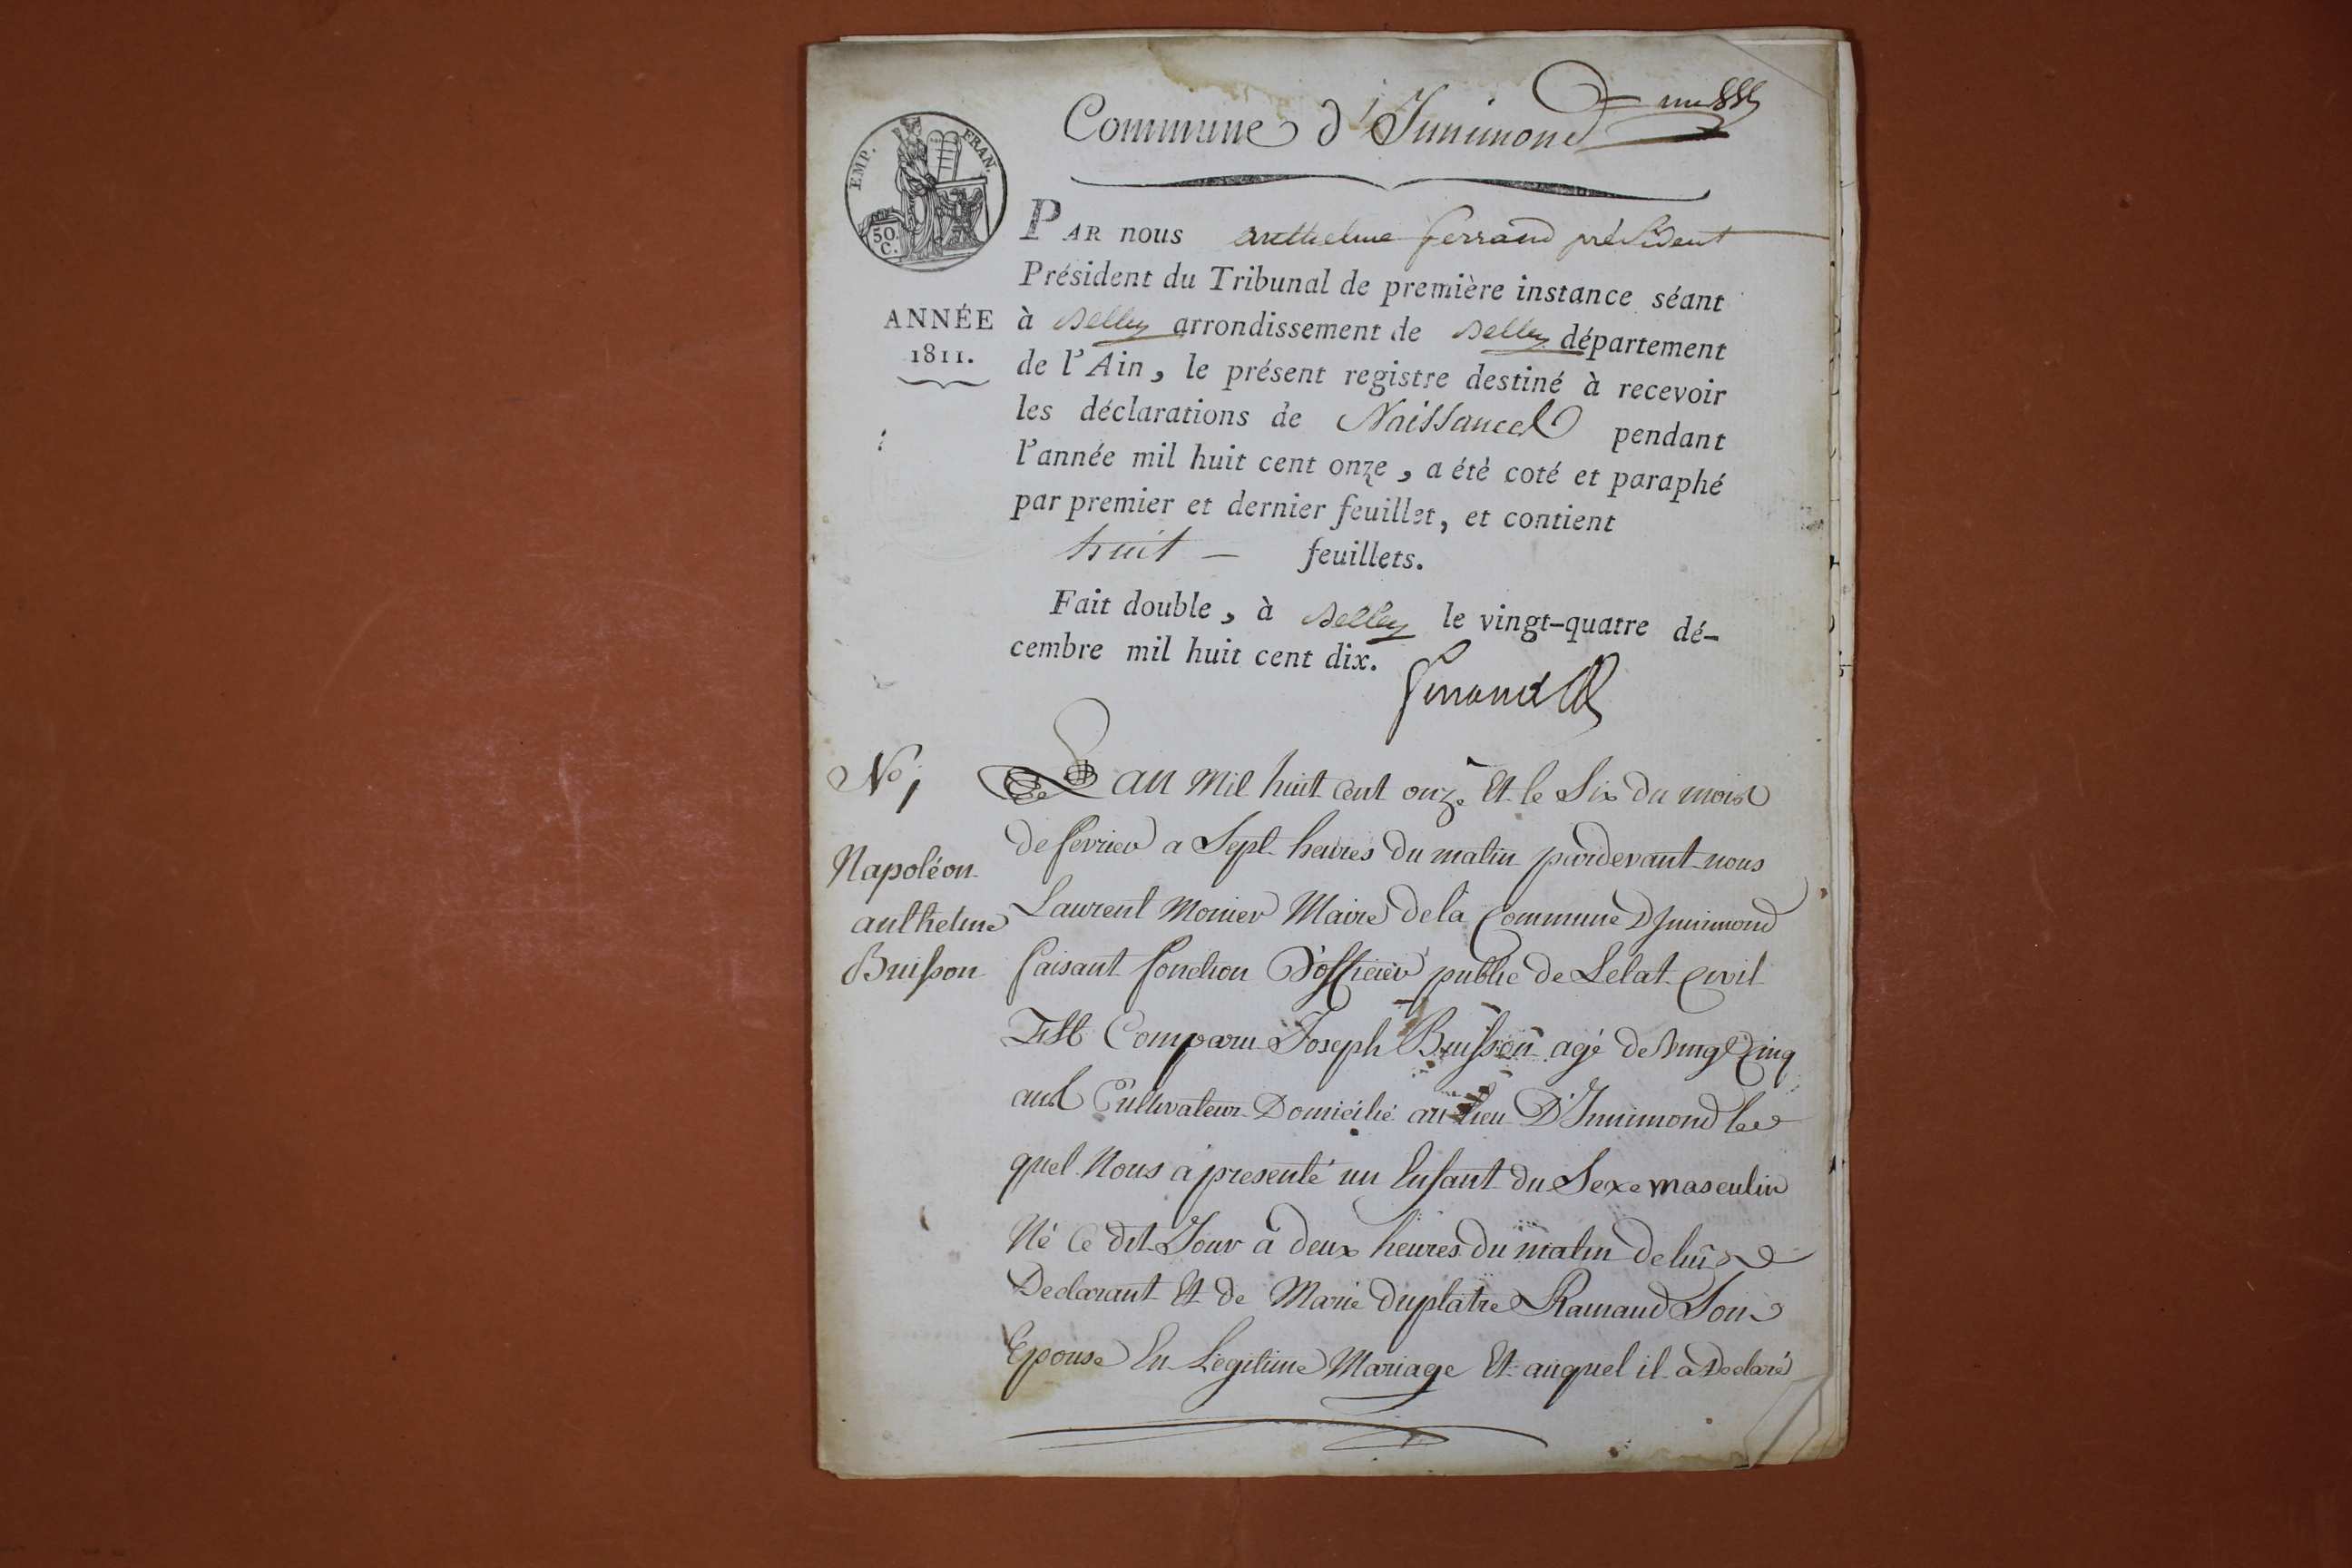 Commune d'Innimond
EMP. FRAN.
50
C.
PAR nous anthelme ferrand président
Président du Tribunal de première instance séant
ANNÉE
1811.
à Belley arrondissement de Belley département
de l'Ain, le présent registre destiné à recevoir
les déclarations de Naissances pendant
l'année mil huit cent onze, a été coté et paraphé
par premier et dernier feuillet, et contient
huit — feuillets.
Fait double, à Belley le vingt-quatre dé-
cembre mil huit cent dix.
N° 1
Napoléon
anthelme
Buisson
L an mil huit cent onze Et le Six du mois
de fevrier a Sept heures du matin pardevant nous
Laurent Monier Maire de la Commune D'Innimond
faisant fonction D'officier public de Letat civil
Est Comparu Joseph Buisson agé de vingt Cinq
ans Cultivateur Domicilié au lieu D'Innimond le
quel Nous a presenté un Enfant du Sexe masculin
Né ce dit Jour a deux heures du matin de lui
Declarant Et de Marie duplatre Ramand Son
Epouse En Legitime Mariage Et auquel il a Declaré